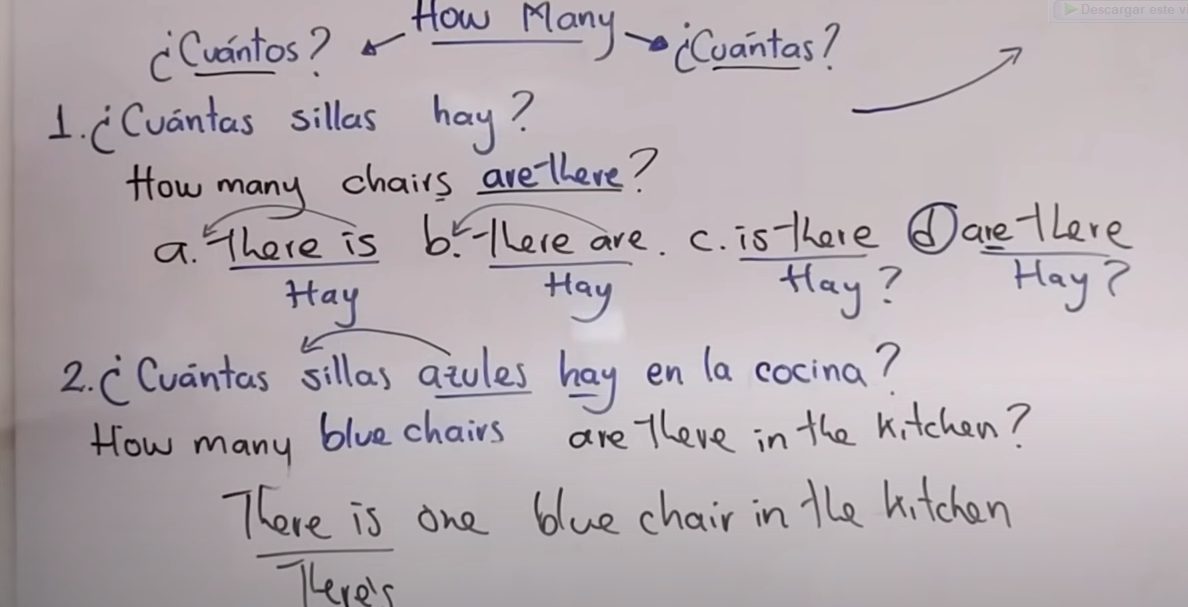 Descargar este v
How Many
¿Cuántos? ¿Cuántas?
1. ¿Cuántas sillas hay?
How many chairs are there?
a. There is b. There are. c. is there d are there
Hay Hay Hay? Hay?
2. ¿Cuántas sillas azules hay en la cocina?
How many blue chairs are there in the kitchen?
There is one blue chair in the kitchen
There's